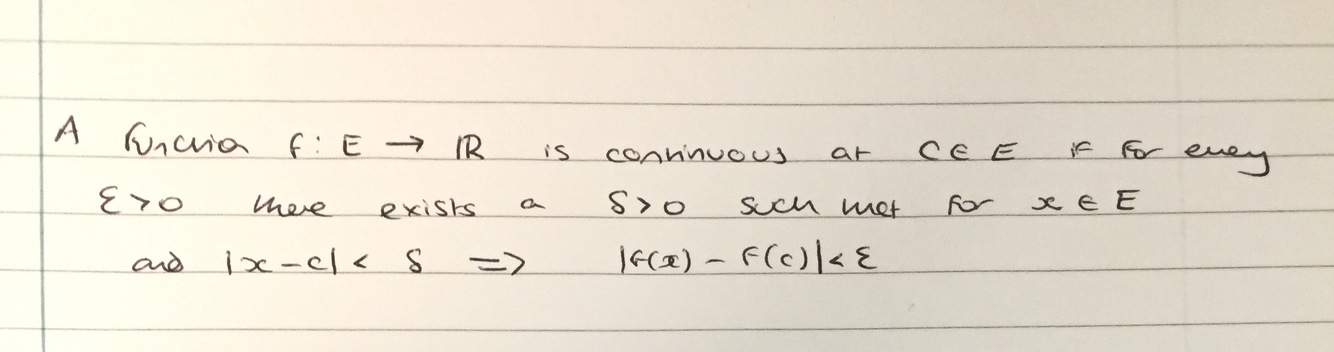 A function f: E → ℝ is continuous at c ∈ E if for every
ε > 0 there exists a δ > 0 such that for x ∈ E
and |x - c| < δ => |f(x) - f(c)| < ε